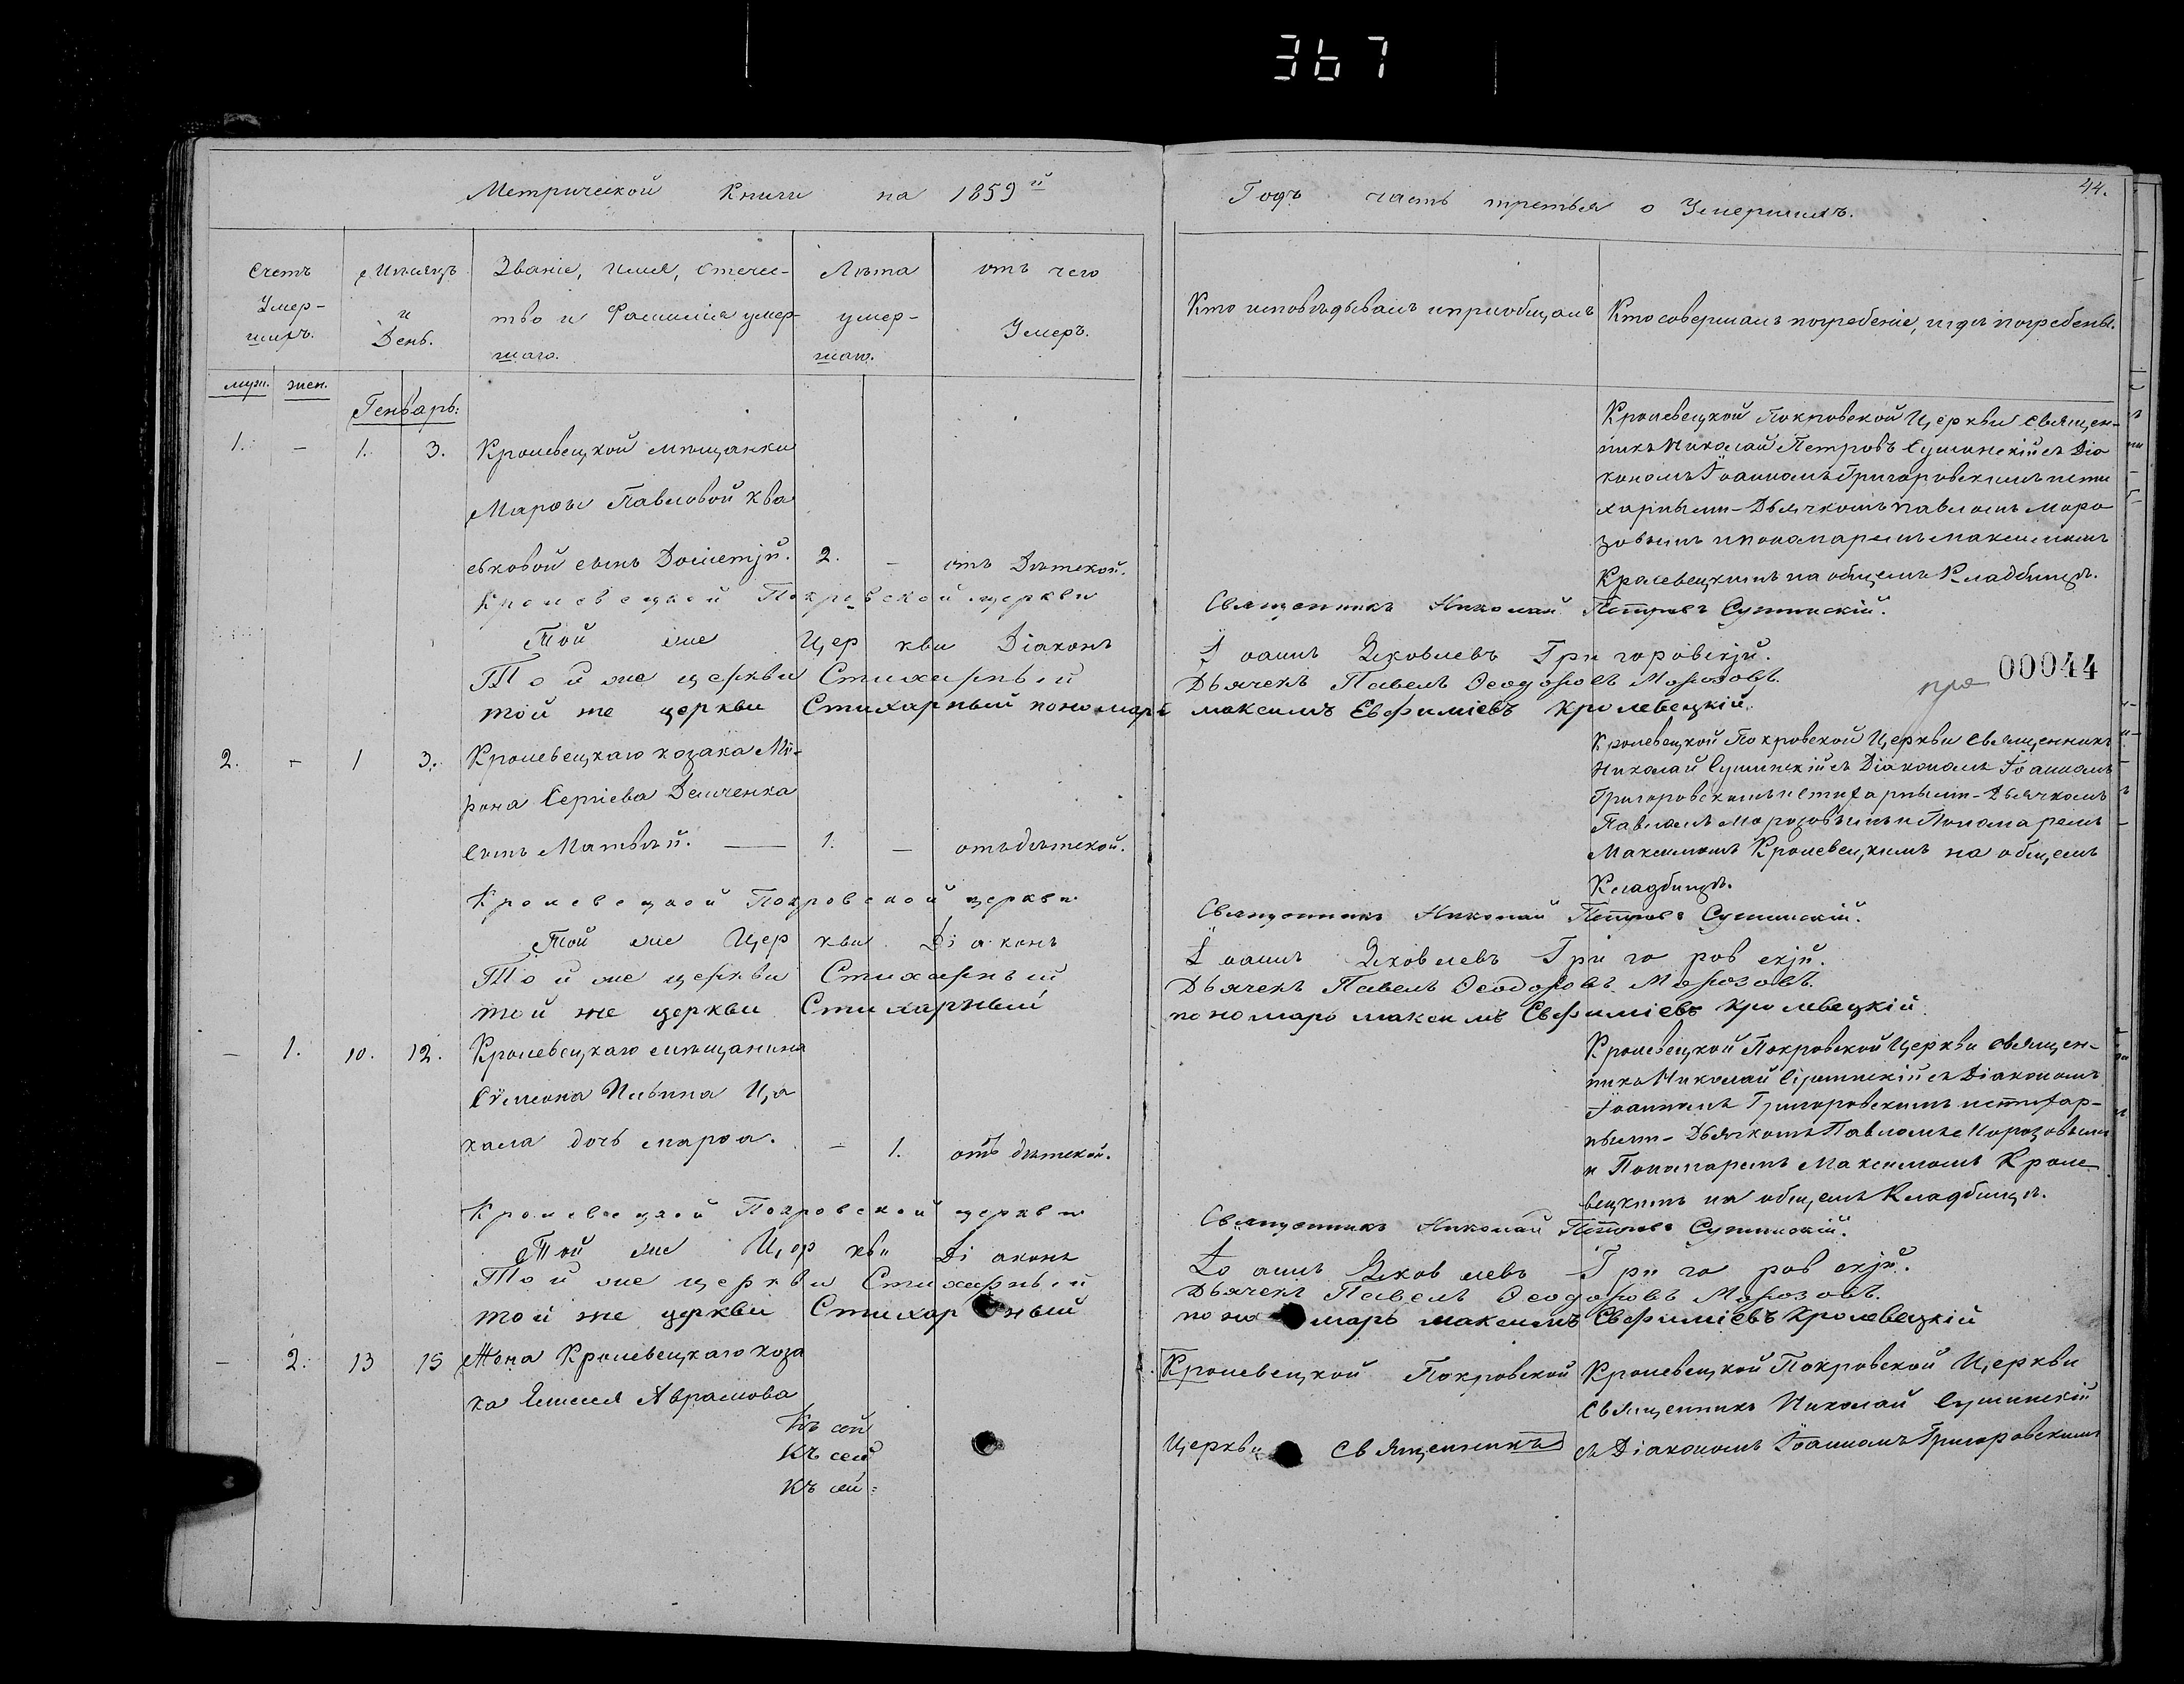 367
Метрической Книги на 1859й
Годъ часть третья о Умершихъ.
44.
Счетъ Умер-
шихъ.
муж. жен.
Мѣсяцъ
и
День.
Званіе, имя, отечес-
тво и Фамилія умер-
шаго.
Лѣта
умер-
шаго.
отъ чего
Умеръ.
Кто исповѣдывалъ и пріобщалъ
Кто совершалъ погребеніе, и гдѣ погребены.
Генварь:
1. – 1. 3. Кролевецкой мѣщанки
Марфы Павловой Ква
сынъ 2. – отъ Дѣтской.
Кролевецкой Покровской Церкви Священ-
никъ Николай Петровъ Сушинскій съ Діа
кономъ Іоанномъ Григоровскимъ и сти
харнымъ-Дьячкомъ Павломъ Моро
зовымъ и пономаремъ Максимомъ
Кролевецкимъ на общемъ Кладбищѣ.
Кролевецкой Покровской церкви Священникъ Николай Петровъ Сушинскій.
Той же Церкви Діаконъ Іоаннъ Яковлевъ Григоровскій.
Той же церкви Стихарный Дьячекъ Павелъ Ѳеодоровъ Морозовъ.
той же церкви Стихарный пономарь максимъ Евфиміевъ Кролевецкій.
00044
2. – 1 3. Кролевецкаго козака Ми-
рона Сергіева Демченка
сынъ Матвѣй. — 1. – отъ дѣтской.
Кролевецкой Покровской Церкви Священникъ
Николай Сушинскій съ Діакономъ Іоанномъ
Григоровскимъ и стихарнымъ-Дьячкомъ
Павломъ Морозовымъ и Пономаремъ
Максимомъ Кролевецкимъ на общемъ
Кладбищѣ.
Кролевецкой Покровской церкви Священникъ Николай Петровъ Сушинскій.
Той же Церкви Діаконъ Іоаннъ Яковлевъ Григоровскій.
Той же церкви Стихарный Дьячекъ Павелъ Ѳеодоровъ Морозовъ.
той же церкви Стихарный пономарь максимъ Евфиміевъ Кролевецкій.
– 1. 10. 12. Кролевецкаго мѣщанина
Сѷмеона Ильина Ца
хала дочь марфа. – 1. отъ дѣтской.
Кролевецкой Покровской Церкви Священ-
никъ Николай Сушинскій съ Діакономъ
Іоанномъ Григоровскимъ и стихар-
нымъ-Дьячкомъ Павломъ Морозовымъ
и Пономаремъ Максимомъ Кроле
вецкимъ на общемъ Кладбищѣ.
Кролевецкой Покровской церкви Священникъ Николай Петровъ Сушинскій.
Той же Церкви Діаконъ Іоаннъ Яковлевъ Григоровскій.
Той же церкви Стихарный Дьячекъ Павелъ Ѳеодоровъ Морозовъ.
той же церкви Стихарный пономарь максимъ Евфиміевъ Кролевецкій
– 2. 13 15 Жена Кролевецкаго коза
ка Авраамова
Кролевецкой Покровской
Церкви Священникъ
Кролевецкой Покровской Церкви
Священникъ Николай Сушинскій
съ Діакономъ Іоанномъ Григоровскимъ
Къ сей
Къ сей
Къ сей: